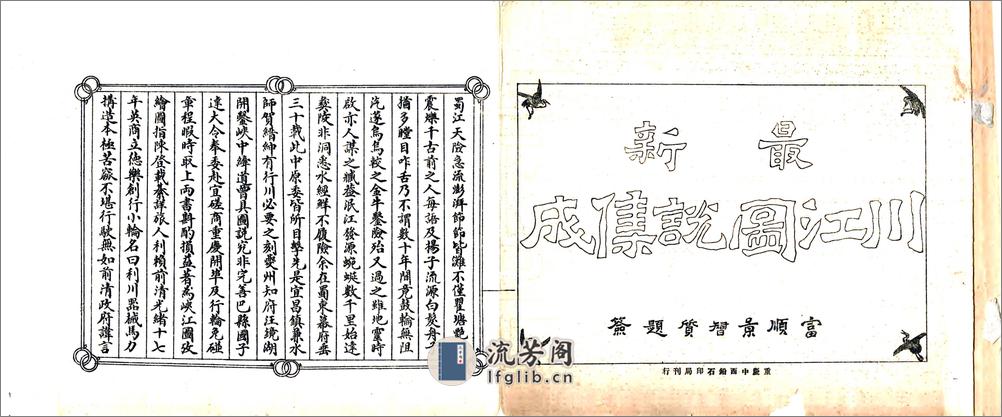 最新
川江圖說集成
富順景習質題簽
重慶中西鉛石印局刊行
蜀江天險急流澎湃節節皆灘不僅瞿塘灩
震爍千古前之人每語及揚子流源白髮舟子
猶多瞠目咋舌乃不謂數十年間竟鼓輪無阻
汽邃烏烏較之金牛鑿險殆又過之雖地靈時
啟亦人謀之臧蓋岷江發源蜿蜒數千里始達
夔陵非洞悉水經鮮不履險余在蜀東幕府垂
三十載此中原委皆所目擊先是宜昌鎮兼水
師賀縉紳有行川必要之刻夔州知府汪曉湖
開鑿峽中縴道曾具圖說究非完善巴縣國子
達大令奉委赴宜磋商重慶開埠及行輪免碰
章程暇時取上兩書斟酌損益著為峽江圖攷
繪圖指陳登載綦詳旅人利賴前清光緒十七
年英商立德樂創行小輪名曰利川器械馬力
搆造本極苦窳不堪行駛無如前清政府諱言
流芳阁
lfglib.cn